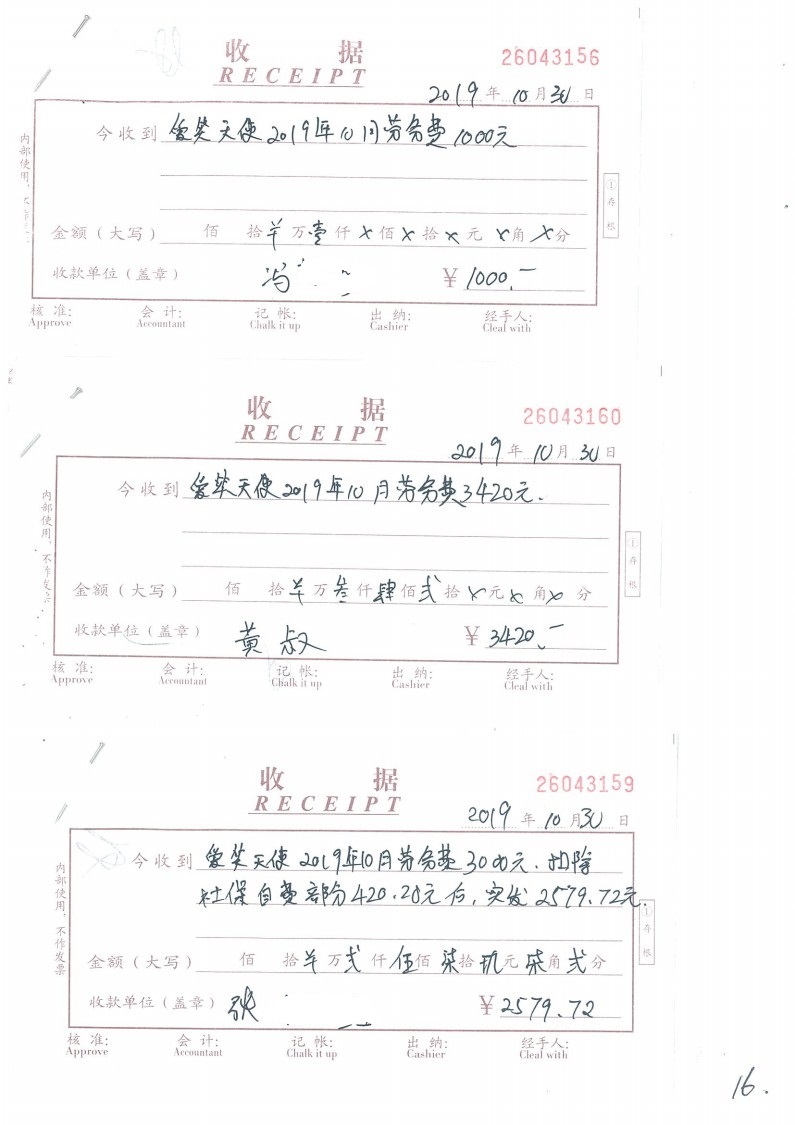 收 据
26043156
RECEIPT
2019 年 10 月 30 日
今收到 爱笑天使2019年10月劳务费1000元
内部使用，
①存根
金额（大写） 佰 拾 羊 万 壹 仟 X 佰 X 拾 X 元 X 角 X 分
收款单位（盖章） 冯 ￥ 1000.—
核 准: 会 计: 记 帐: 出 纳: 经手人:
Approve Accountant Chalk it up Cashier Cleal with
收 据
26043160
RECEIPT
2019 年 10 月 30 日
今收到 爱笑天使2019年10月劳务费3420元.
内部使用，不作发票
①存根
金额（大写） 佰 拾 羊 万 叁 仟 肆 佰 弍 拾 X 元 X 角 X 分
收款单位（盖章） 黄叔 ￥ 3420.—
核 准: 会 计: 记 帐: 出 纳: 经手人:
Approve Accountant Chalk it up Cashier Cleal with
收 据
26043159
RECEIPT
2019 年 10 月 30 日
今收到 爱笑天使2019年10月劳务费3000元.扣除
社保自费部分420.20元后,实发2579.72元.
内部使用，不作发票
①存根
金额（大写） 佰 拾 羊 万 弍 仟 伍 佰 柒 拾 玖 元 柒 角 弍 分
收款单位（盖章） 张 ￥ 2579.72
核 准: 会 计: 记 帐: 出 纳: 经手人:
Approve Accountant Chalk it up Cashier Cleal with
16.